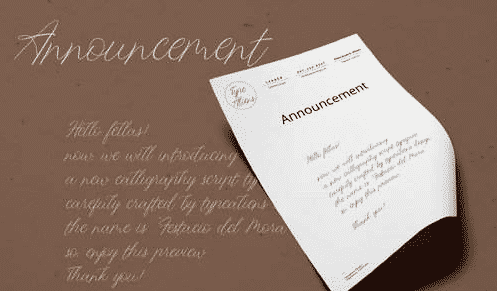 Announcement
Hello fellas!
now we will introducing
a new calligraphy script ty
carefully crafted by typeations
the name is "Festacio del Mora
so, enjoy this preview
Thank you!
Type
Announcement
Hello fellas!
now we will introducing
a new calligraphy script typeface
carefully crafted by typeations
the name is "Festacio del Mora
so, enjoy this preview
Thank you!